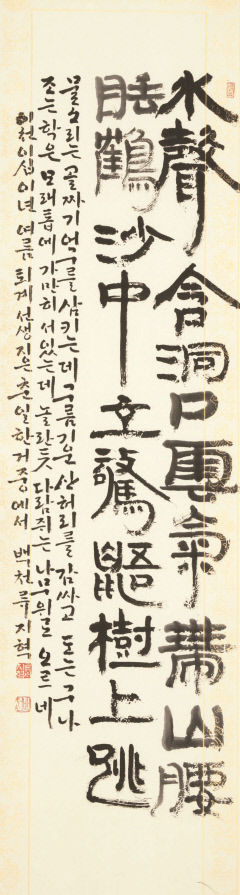 水聲含洞口雲氣帶山腰
眠鶴沙中立驚鼯樹上跳
물소리는 골짜기 어구를 삼키는데 구름기운 산허리를 감싸고 도는구나
조는 학은 모래톱에 가만히 서있는데 놀란 듯 다람쥐는 나무위로 오르네
이천이십이년 여름 퇴계선생 지은 춘일한거 중에서 백천 류지혁